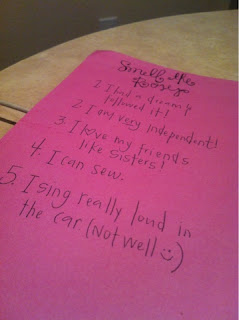 Smell the
Roses
1. I had a dream &
followed it!
2. I am very independent!
3. I love my friends
like sisters!
4. I can sew.
5. I sing really loud in
the car (Not well ☺)